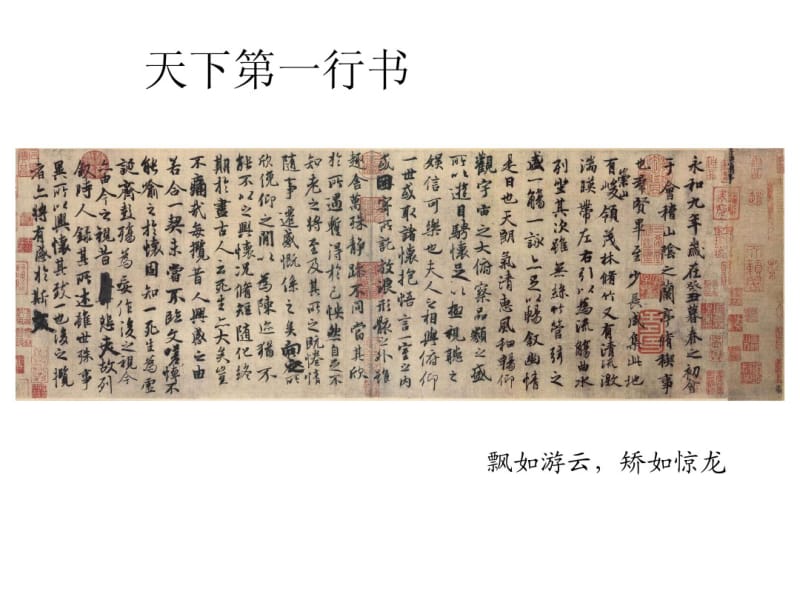 天下第一行书
永和九年歲在癸丑暮春之初會
于會稽山陰之蘭亭脩稧事
也羣賢畢至少長咸集此地
有崇山峻領茂林脩竹又有清流激
湍暎帶左右引以為流觴曲水
列坐其次雖無絲竹管弦之
盛一觴一詠亦足以暢敘幽情
是日也天朗氣清惠風和暢仰
觀宇宙之大俯察品類之盛
所以遊目騁懷足以極視聽之
娛信可樂也夫人之相與俯仰
一世或取諸懷抱悟言一室之內
或因寄所託放浪形骸之外雖
趣舍萬殊靜躁不同當其欣
於所遇暫得於己怏然自足不
知老之將至及其所之既惓情
隨事遷感慨係之矣向之所
欣俛仰之間以為陳迹猶不
能不以之興懷況脩短隨化終
期於盡古人云死生亦大矣豈
不痛哉每攬昔人興感之由
若合一契未嘗不臨文嗟悼不
能喻之於懷固知一死生為虛
誕齊彭殤為妄作後之視今
亦由今之視昔悲夫故列
敘時人錄其所述雖世殊事
異所以興懷其致一也後之攬
者亦將有感於斯文
飘如游云，矫如惊龙